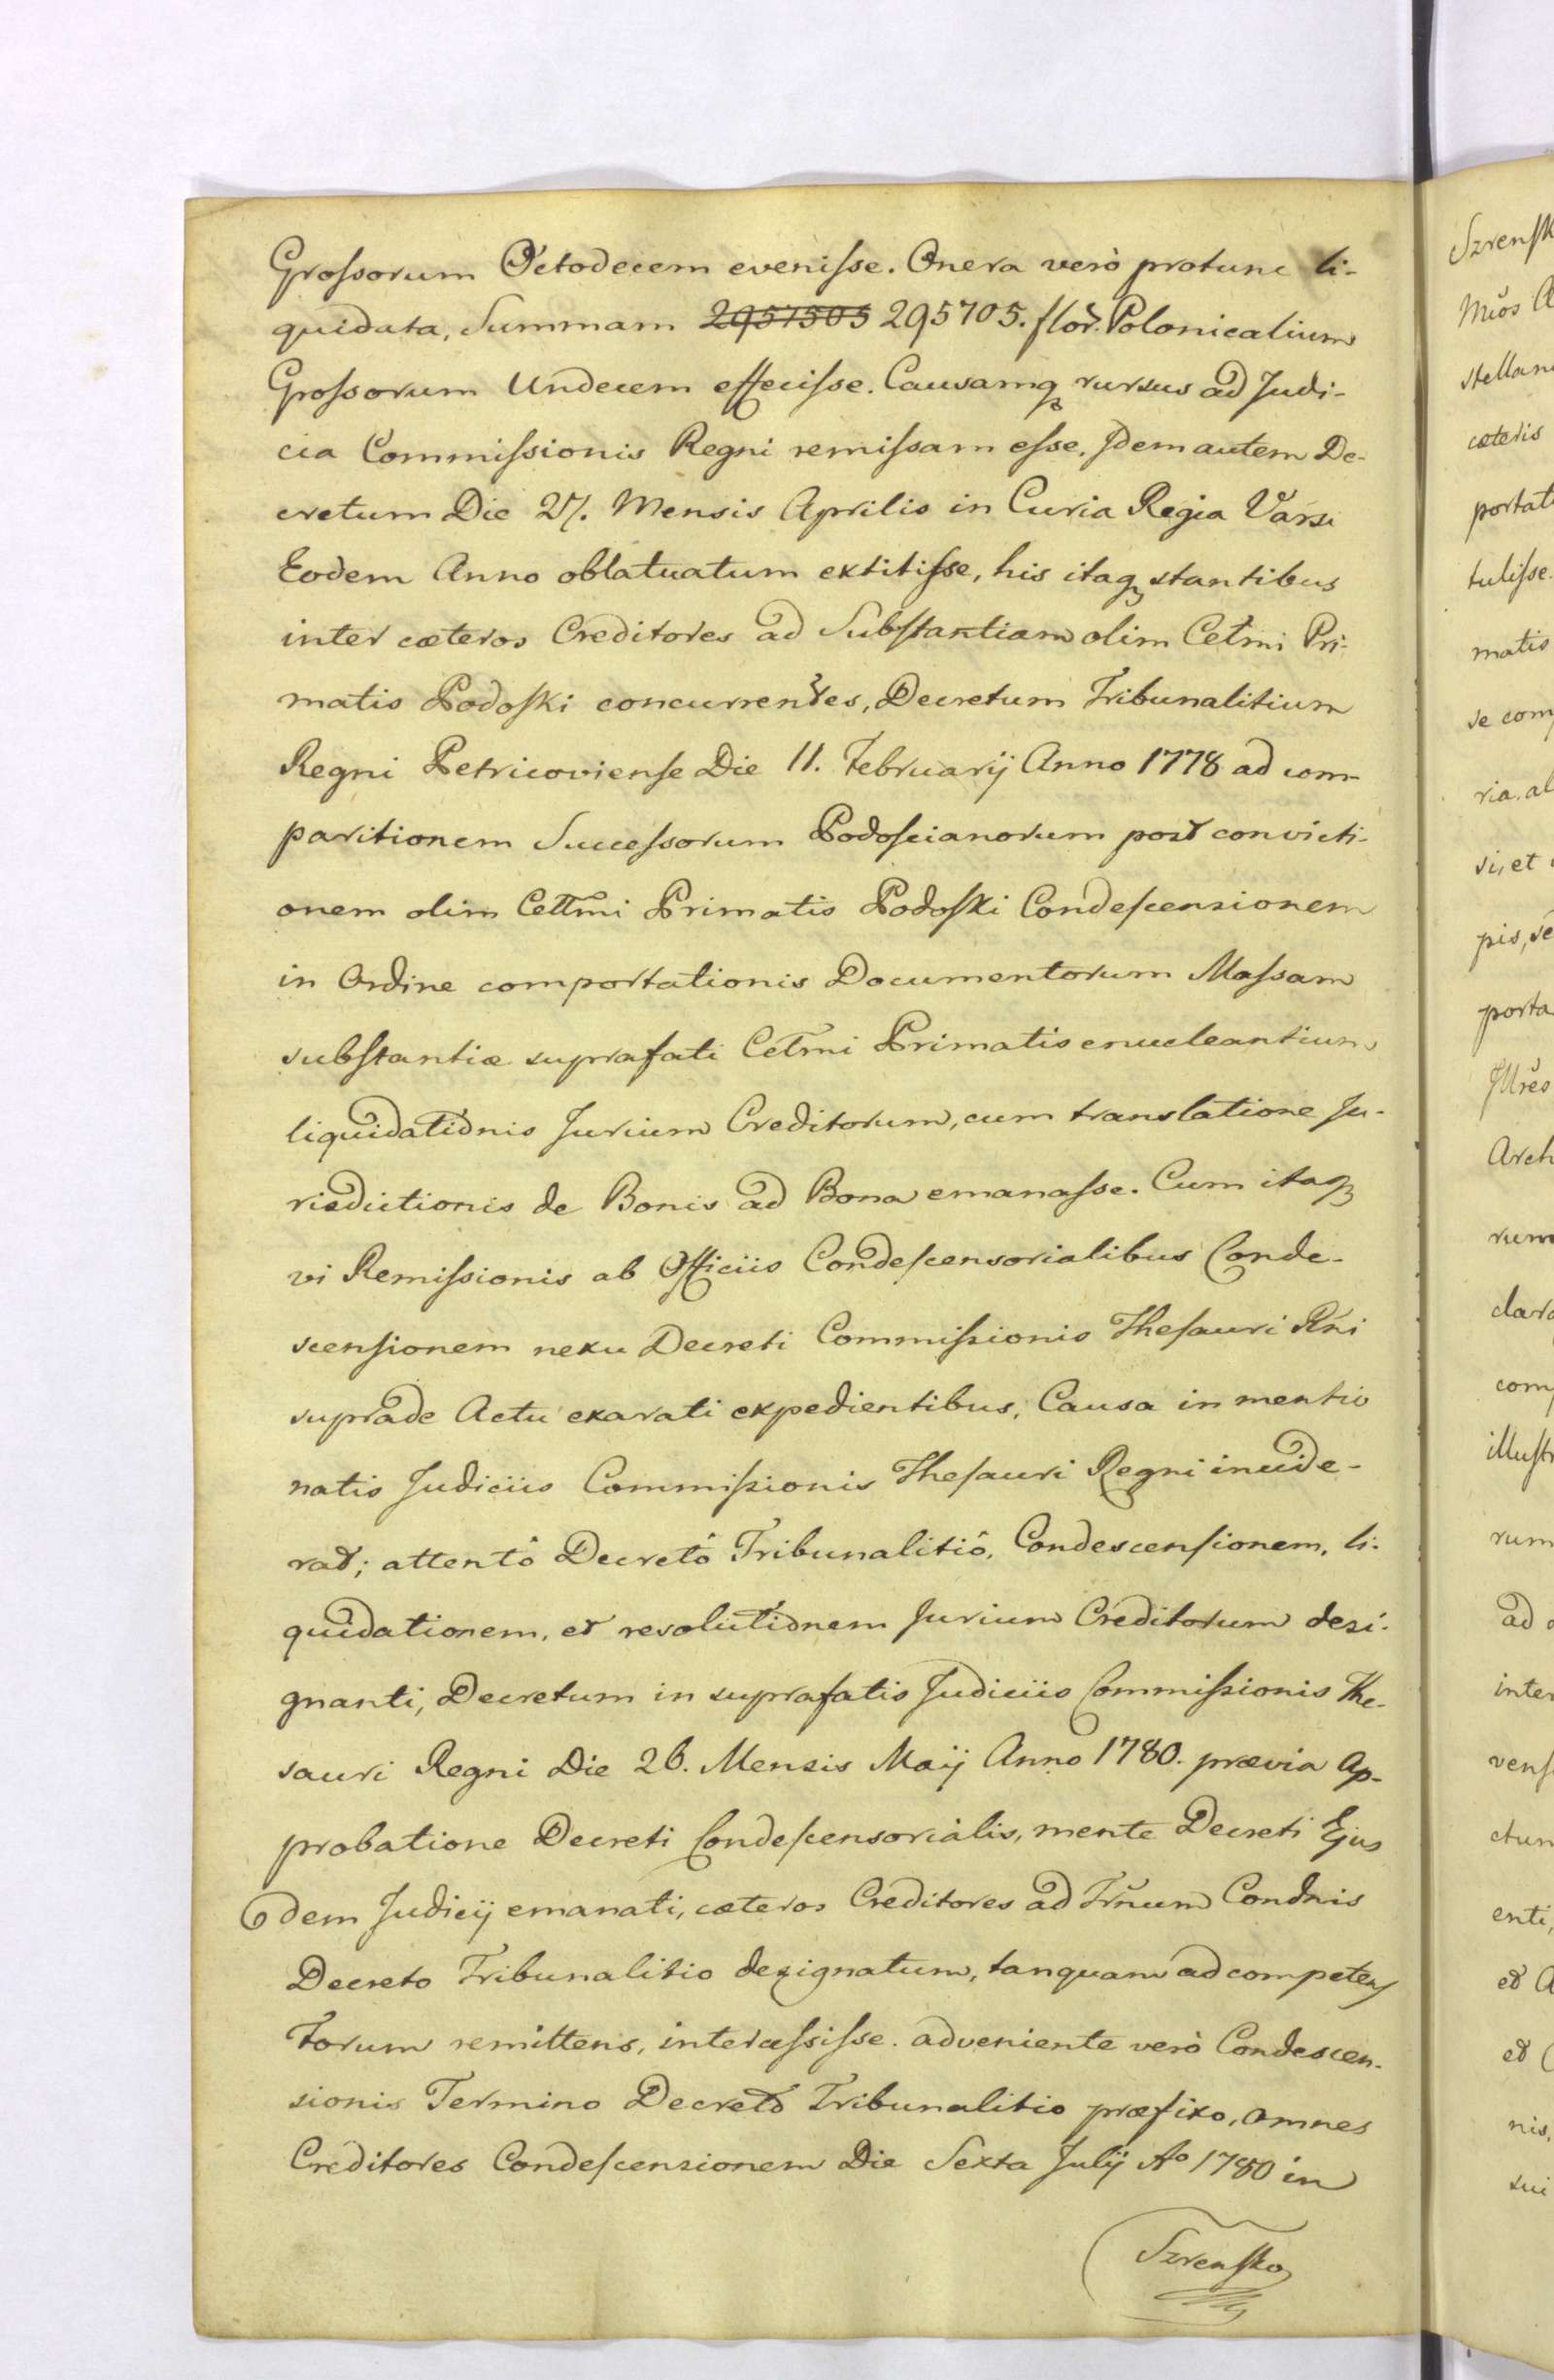 Grossorum Octodecem evenisse. Onera verò protunc li-
quidata, Summam 2957505 295705. flor. Polonicalium
Grossorum Undecem effecisse. Causamq, rursus ad Judi-
cia Commissionis Regni remissam esse. Idem autem De-
cretum Die 27. Mensis Aprilis in Curia Regia Varsi
Eodem Anno oblatuatum extitisse, his itaq, stantibus
inter cæteros Creditores ad Substantiam olim Celmi Pri-
matis Podoski concurrentes, Decretum Tribunalitium
Regni Petricoviense Die 11. Februarij Anno 1778 ad com-
paritionem Successorum Podoscianorum post convicti-
onem olim Cellmi Primatis Podoski Condescensionem
in Ordine comportationis Documentorum Massam
substantiæ suprafati Celmi Primatis enucleantium
liquidationis Jurium Creditorum, cum translatione Ju-
risdictionis de Bonis ad Bona emanasse. Cum itaq,
vi Remissionis ab Officiis Condescensorialibus Conde-
scensionem nexu Decreti Commissionis Thesauri Rni
suprade Actu exarati expedientibus, Causa in mentio
natis Judiciis Commissionis Thesauri Regni incide-
rat; attentô Decretô Tribunalitiô, Condescensionem, li-
quidationem, et resolutionem Jurium Creditorum desi-
gnanti, Decretum in suprafatis Judiciis Commissionis The-
sauri Regni Die 26. Mensis Maij Anno 1780. prævia Ap-
probatione Decreti Condescensorialis, mente Decreti Ejus
dem Judicij emanati, cæteros Creditores ad Trnum Condnis
Decreto Tribunalitio designatum, tanquam ad competens
Forum remittens, intercessisse. adveniente verò Condescen-
sionis Termino Decreto Tribunalitio præfixo, omnes
Creditores Condescensionem Die Sexta Julij Ao 1780 in
Szrensko
Szrensk
Mŭos A
stellan
cæteris
portat
tulisse.
matis
se com
ria. al
si, et
pis, se
porta
Illres
Arch
rum
clar
com
illustr
rum
ad
inter
vens
ctum
enti,
et A
et C
nis,
sui